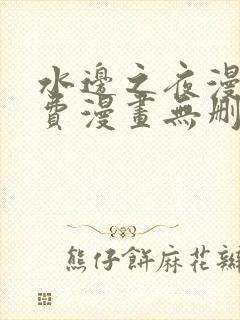 水邊之夜漫
費漫畫無刪
熊仔餅麻花辮